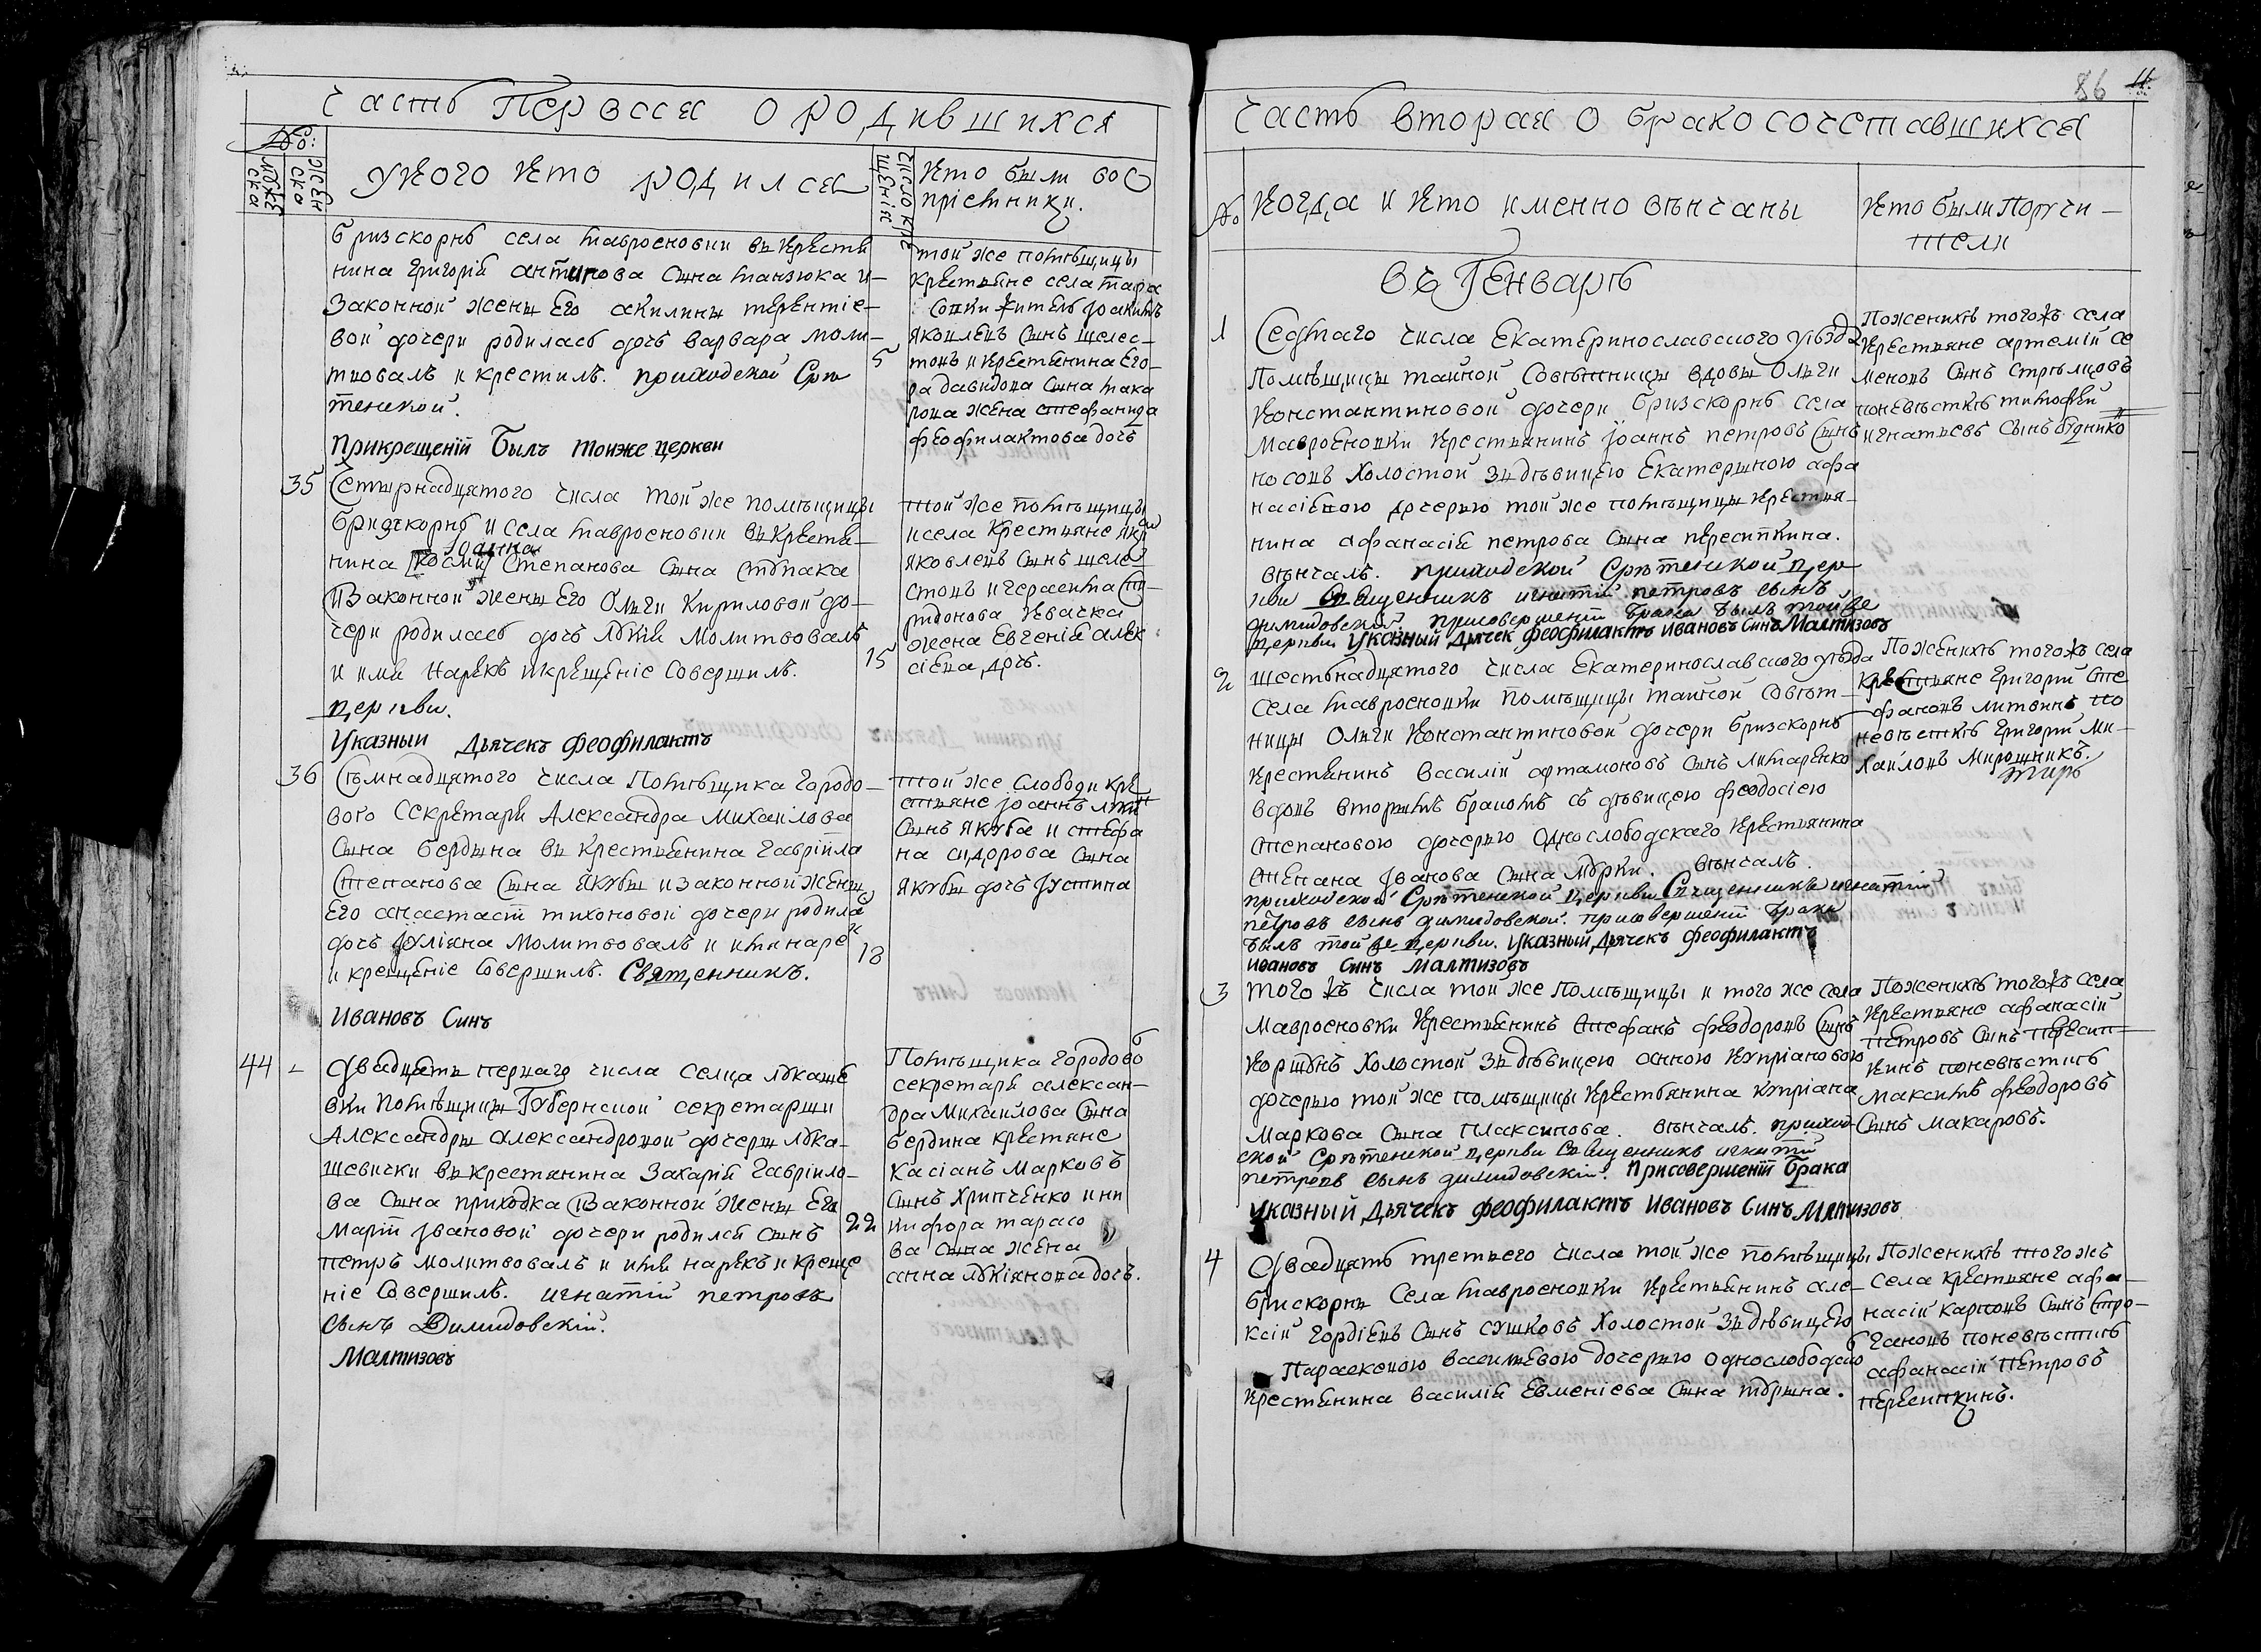 Часть Первая о родившихся
№:
мужеска
женска
у кого кто родился
число крещенія
Кто были вос
прiемники.
бризскорнъ села мавроеновки въ крестья
нина григорiя антипова сына танзюка и
законной жены его акилины терентiе-
вой дочери родилась дочь варвара моли-
твовалъ и крестилъ. приходской Срѣ
тенской.
при крещенiй былъ тоиже церкви
5
той же помѣщицы
крестьяне села мавро
житель iоакимъ
яковлевъ сынъ шелес-
товъ и крестьянина его-
ра давидова сына мака
рова жена стефанида
феофилактова дочь
35
Четырнадцятого числа той же помѣщицы
бризскорнъ и села мавроеновки въ крестья-
нина iоанна степанова сына ступака
и законной жены его Олги Кириловой до-
чери родилась дочь лукiя молитвовалъ
и имя нарекъ и крещенiе совершилъ.
церкви.
Указный дьячекъ феофилактъ
15
той же помѣщицы
и села крестьяне
яковлевъ сынъ шелес
товъ и герасима спи-
ридонова квачка
жена Евгенiя алек
сiева дочь.
36
Семнадцятого числа помѣщика городо-
вого секретаря Александра Михаилова
сына бердына въ крестьянина гаврiила
степанова сына якубы и законной жены
его анастасiи тихоновой дочери родила
дочь iулiана молитвовалъ и имя наре
и крещенiе совершилъ. Священникъ.
Ивановъ Синъ
18
той же слободи кре
стьяне iоаннъ
сынъ якуба и стефа
на сидорова сына
якубы дочь iустина
44 -
Двадцять перваго числа селца лукаше
вки помѣщицы губернской секретарши
Александры александровой дочери лука-
шевички въ крестянина захарiя гаврiило-
ва сына приходка и законной жены его
марiи iвановой дочери родился сынъ
петръ молитвовалъ и имя нарекъ и креще
нiе совершилъ. игнатiй петровъ
сынъ Димидовскiй.
Малтизовъ
22
Помѣщика городово
секретаря алексан-
дра Михаилова сына
бердина крестяне
касiанъ марковъ
сынъ Хрипченко и ни
кифора тарасо
ва сына жена
анна лукiянова дочь.
86
Часть вторая о бракосочетавшихся
№
Когда и кто именно вѣнчаны
Кто были поручи-
тели
въ Генварѣ
1
Седмаго числа Екатеринославского уѣзда
помѣщицы тайной совѣтницы вдовы Олги
Константиновой дочери бризскорнъ села
мавроеновки крестьянинъ iоаннъ петровъ сынъ
носовъ холостой зъ дѣвицею Екатериною афа
насiевою дочерью той же помѣщицы крестья-
нина афанасiя петрова сына пересипкина.
вѣнчалъ. приходской Срѣтенской цер
кви священникъ игнатiй петровъ сынъ
димидовскiй. при совершенiй брака былъ той же
церкви Указный дьячек феофилактъ Ивановъ Синъ Малтизовъ
По женихѣ тогожъ села
крестьяне артемiй се
меновъ сынъ стрѣлцовъ
по невѣстѣ тимофей
игнатьевъ сынъ буднико
2
шестьнадцятого числа Екатеринославского уѣзда
села мавроеновки помѣщицы тайной совѣт-
ницы Олги Константиновой дочери бризскорнъ
крестьянинъ василiй артамоновъ сынъ литаренко
вдовъ вторымъ бракомъ съ дѣвицею феодосiею
степановою дочерью однослободскаго крестьянина
степана iванова сына мурки. вѣнчалъ.
приходской Срѣтенской церкви Священникъ игнатiй
петровъ сынъ димидовской. при совершенiй брака
былъ той же церкви. указный дьячекъ феофилактъ
Ивановъ Синъ Малтизовъ
По женихѣ тогожъ села
крестьяне григорiй сте
фановъ литвинъ по
невѣстѣ григорiй ми-
хаиловъ мирошникъ.
3
того жъ числа той же помѣщицы и того же села
мавроеновки крестьянинъ стефанъ феодоровъ сынъ
коршунъ холостой зъ дѣвицею анною купрiановою
дочерью той же помѣщицы крестьянина купрiана
маркова сына плаксипова. вѣнчалъ. приход
ской Срѣтенской церкви Священникъ игнатiй
петровъ сынъ димидовскiй. при совершенiй брака
Указный дьячекъ феофилактъ Ивановъ Синъ Малтизовъ
По женихѣ тогожъ села
крестьяне афанасiй
петровъ сынъ пересип-
кинъ по невѣстѣ
максимъ феодоровъ
сынъ макаровъ.
4
Двадцять третьего числа той же помѣщицы
брискорнъ села мавроеновки крестьянинъ але-
ксiй гордiевъ сынъ сушковъ холостой зъ дѣвицею
Параскевою васильевою дочерью однослободско
крестьянина василiя евменiева сына турына.
По женихѣ тогожъ
села крестьяне афа-
насiй карповъ сынъ стро-
гановъ по невѣстѣ
афанасiй петровъ
пересипкинъ.